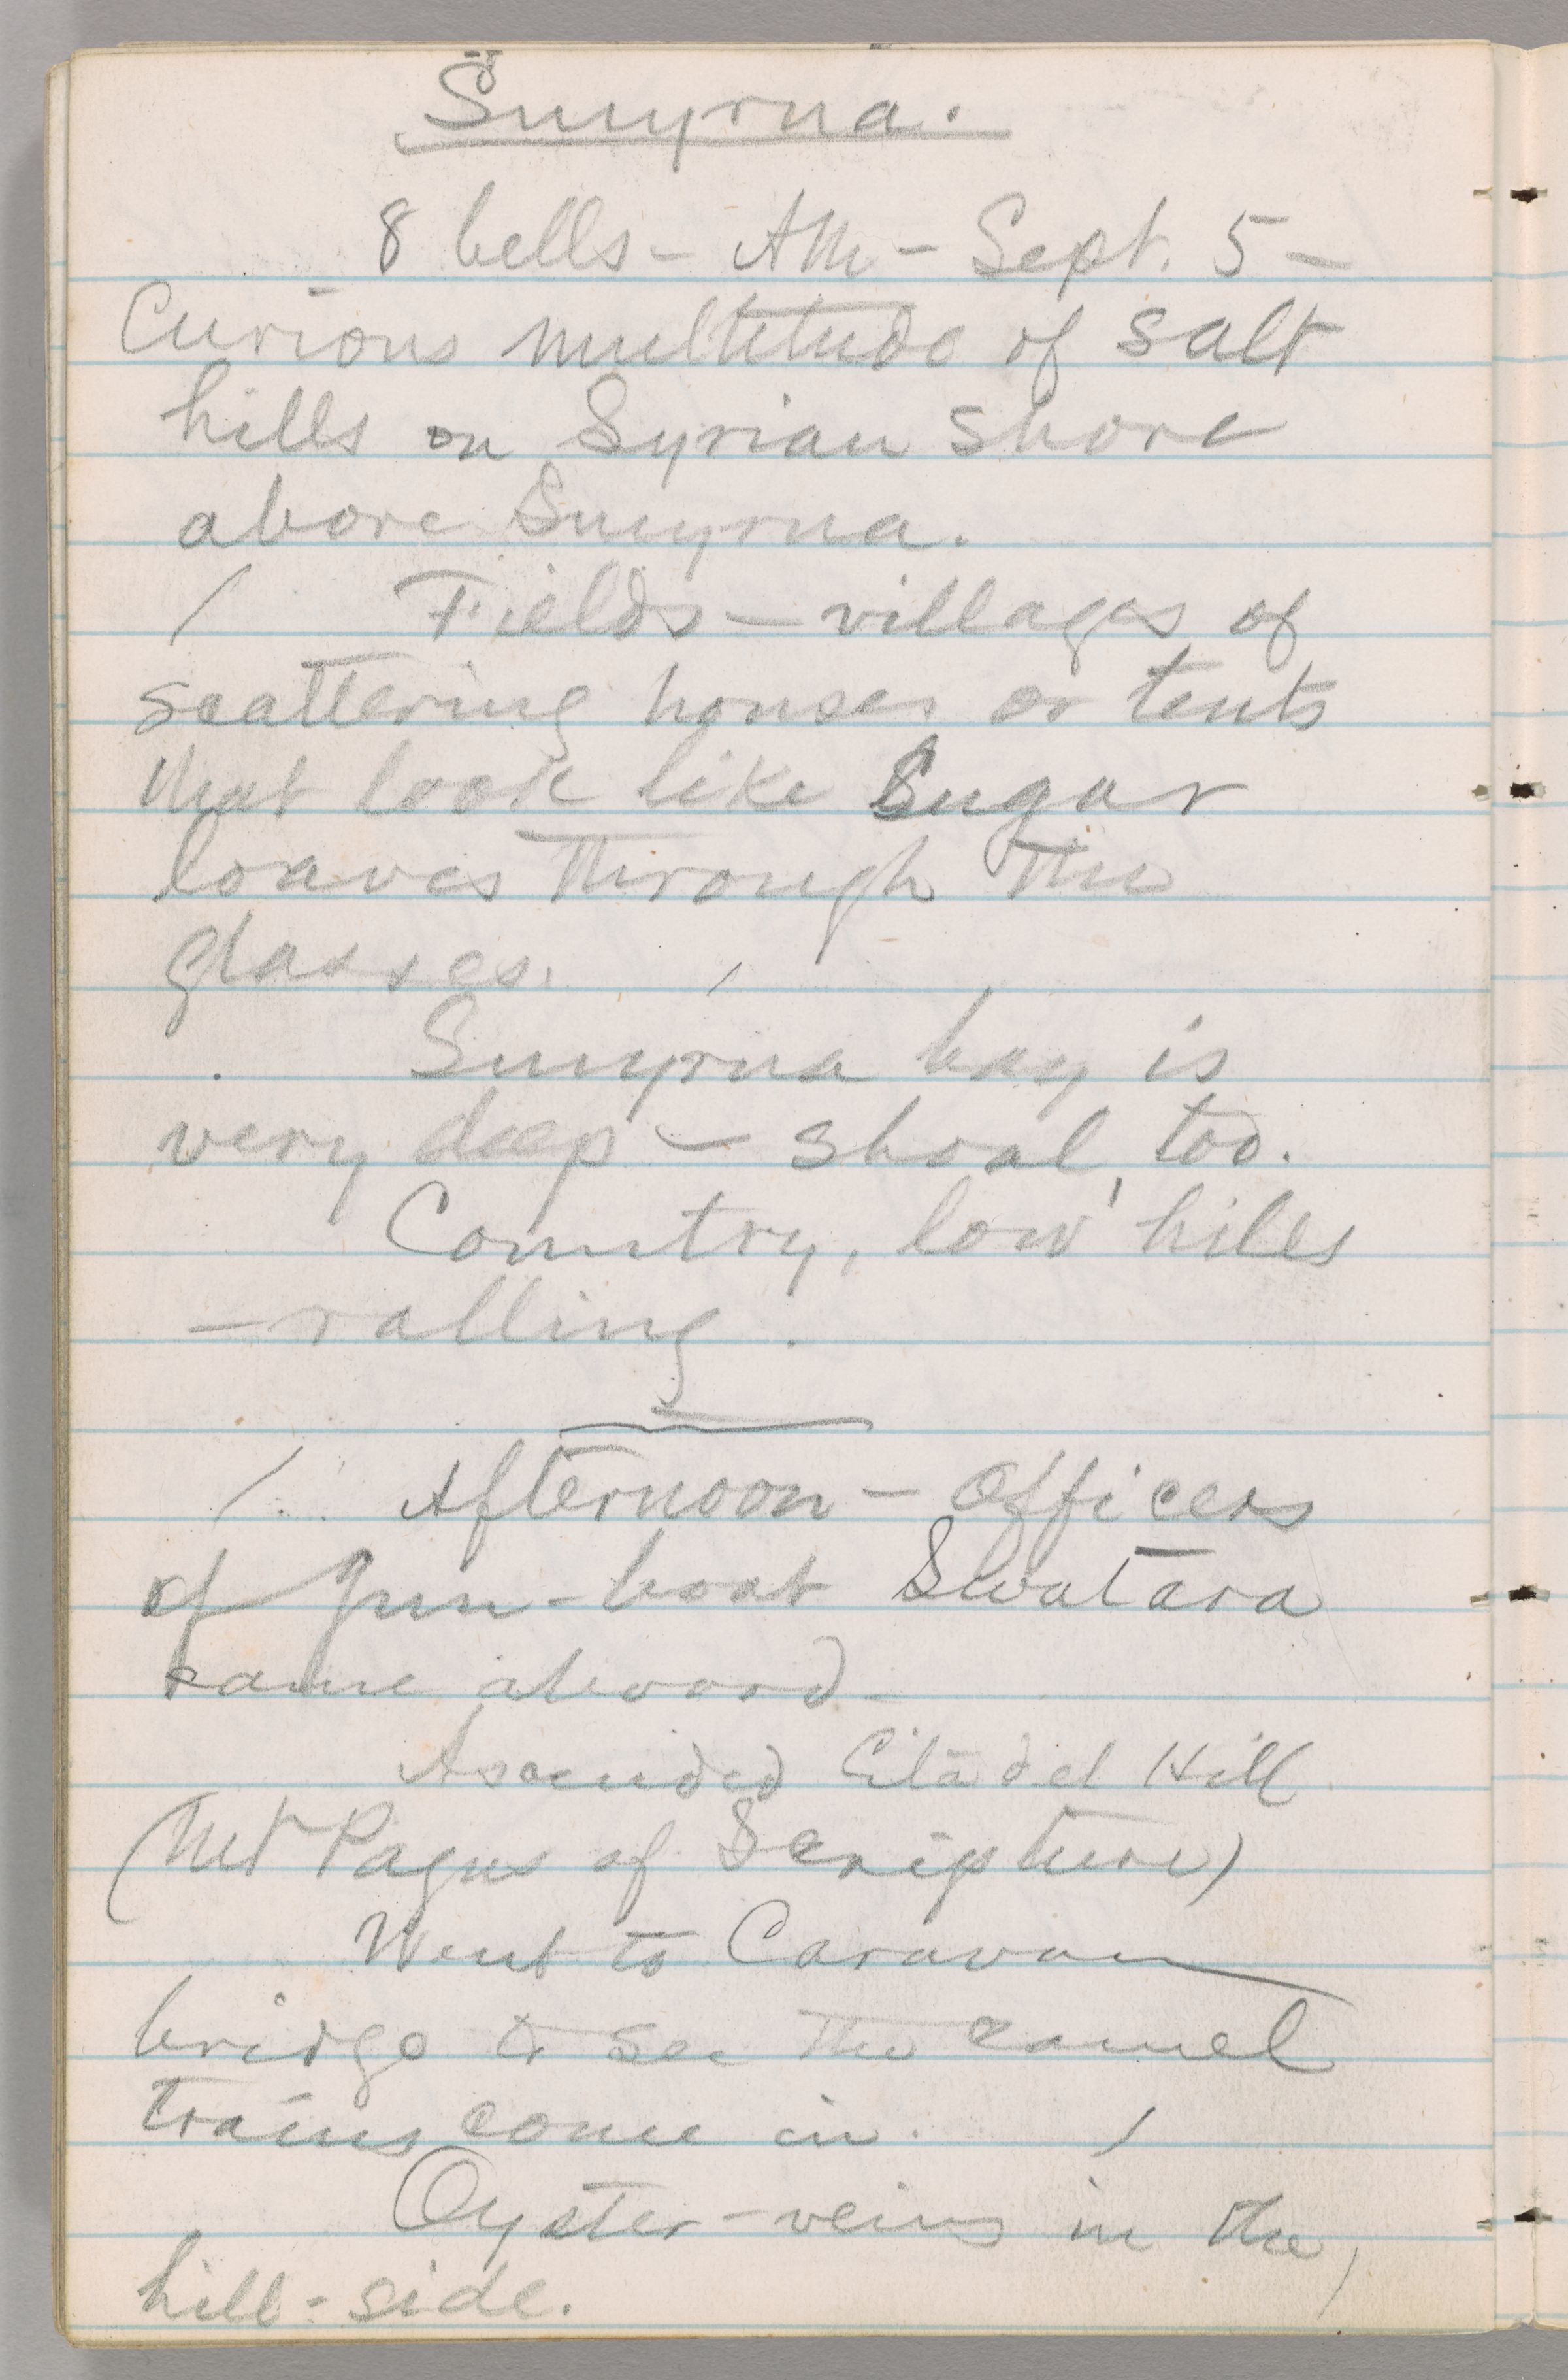 Smyrna.
8 bells - AM - Sept. 5 -
Curious multitude of salt
hills on Syrian shore
above Smyrna.
Fields - villages of
scattering houses or tents
that look like Sugar
loaves through the
glasses.
Smyrna bay is
very deep - shoal, too.
Country, low hills
- rolling.
Afternoon - Officers
of gun-boat Swatara
came aboard -
Ascended Citadel Hill
(Mt Pagus of Scripture)
Went to Caravan
bridge to see the camel
trains come in.
Oyster-veins in the
hill-side.